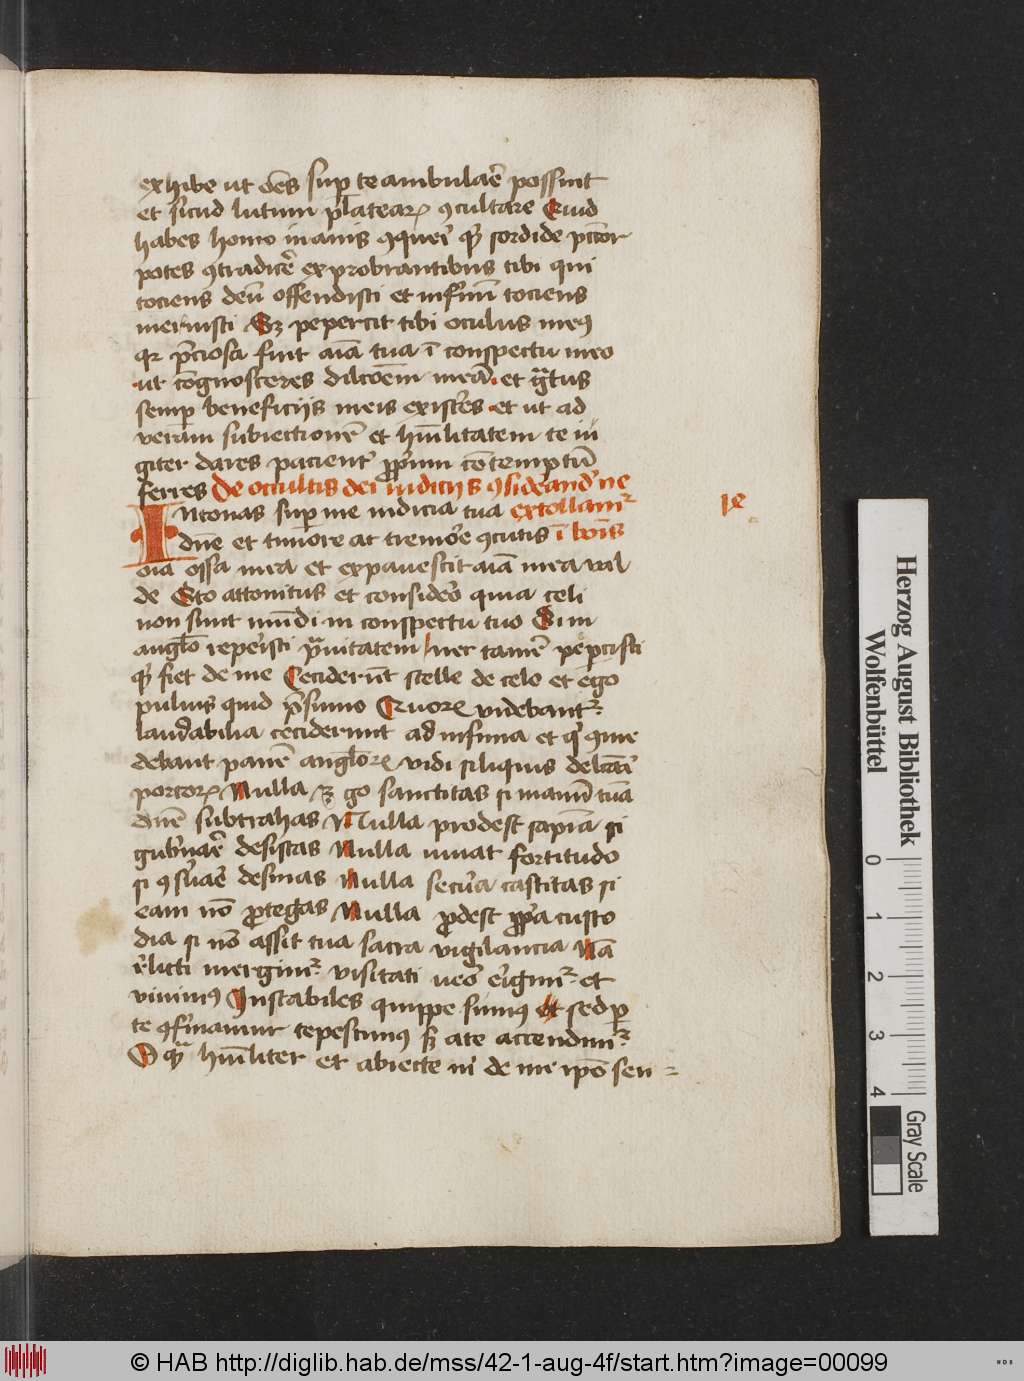 exhibe ut oēs sup te ambulaē possint
et sicud lutum platearꝝ ꝯcultare Quid
habes homo inanis ꝯqueri qͥ sordide pctor
potes ꝯtradicē exprobrantibus tibi qui
tociens deū offendisti et infnū tociens
meruisti Sꝫ pepercit tibi oculus meꝰ
qꝛ p̄ciosa fuit aīa tua ī conspectu meo
ut cōgnosceres dilcōem meā et gͣtus
semp beneficijs meis existeres et ut ad
veram subiectionē et hūilitatem te iu
giter dares pacient prprium cōtemptū
ferres De occultis dei iudicijs ꝯsiderand ne
Intonas sup me iudicia tua extollamꝛ
dnē et timore ac tremore ꝯcutis ī bonis
oīa ossa mea et expauescit aīa mea val
de Sto attonitus et considero quia celi
non sunt mūdi in conspectu tuo Si in
anglīs reperisti pͣuitatem nec tamē pepcisti
qͥ fiet de me Ceciderūt stelle de celo et ego
puluis quid p̄sumo Quorꝝ videbantꝛ
laudabilia ceciderunt ad infima et qͥ ꝯme
debant panē angeloꝝ vidi siliquis delcāi
porcorꝝ Nulla ꝫ go sanctitas si manū tuā
dnē subtrahas Nulla prodest sapīa si
gubnaē desistas Nulla iuuat fortitudo
si ꝯseruaē desinas Nulla secura castitas si
eam nō protegas Nulla prodest ppͥa custo
dia si nō assit tua sacra vigilancia Nā
relicti mergimꝛ visitati uero erigimꝛ et
viuimꝰ Instabiles quippe sumꝰ et sed p
te ꝯfirmamur tepescimꝰ sꝫ a te accendimꝛ
O qͣ hūiliter et abiecte m de me ipō sen=
Herzog August Bibliothek
Wolfenbüttel
0 1 2 3 4
Gray Scale
© HAB http://diglib.hab.de/mss/42-1-aug-4f/start.htm?image=00099